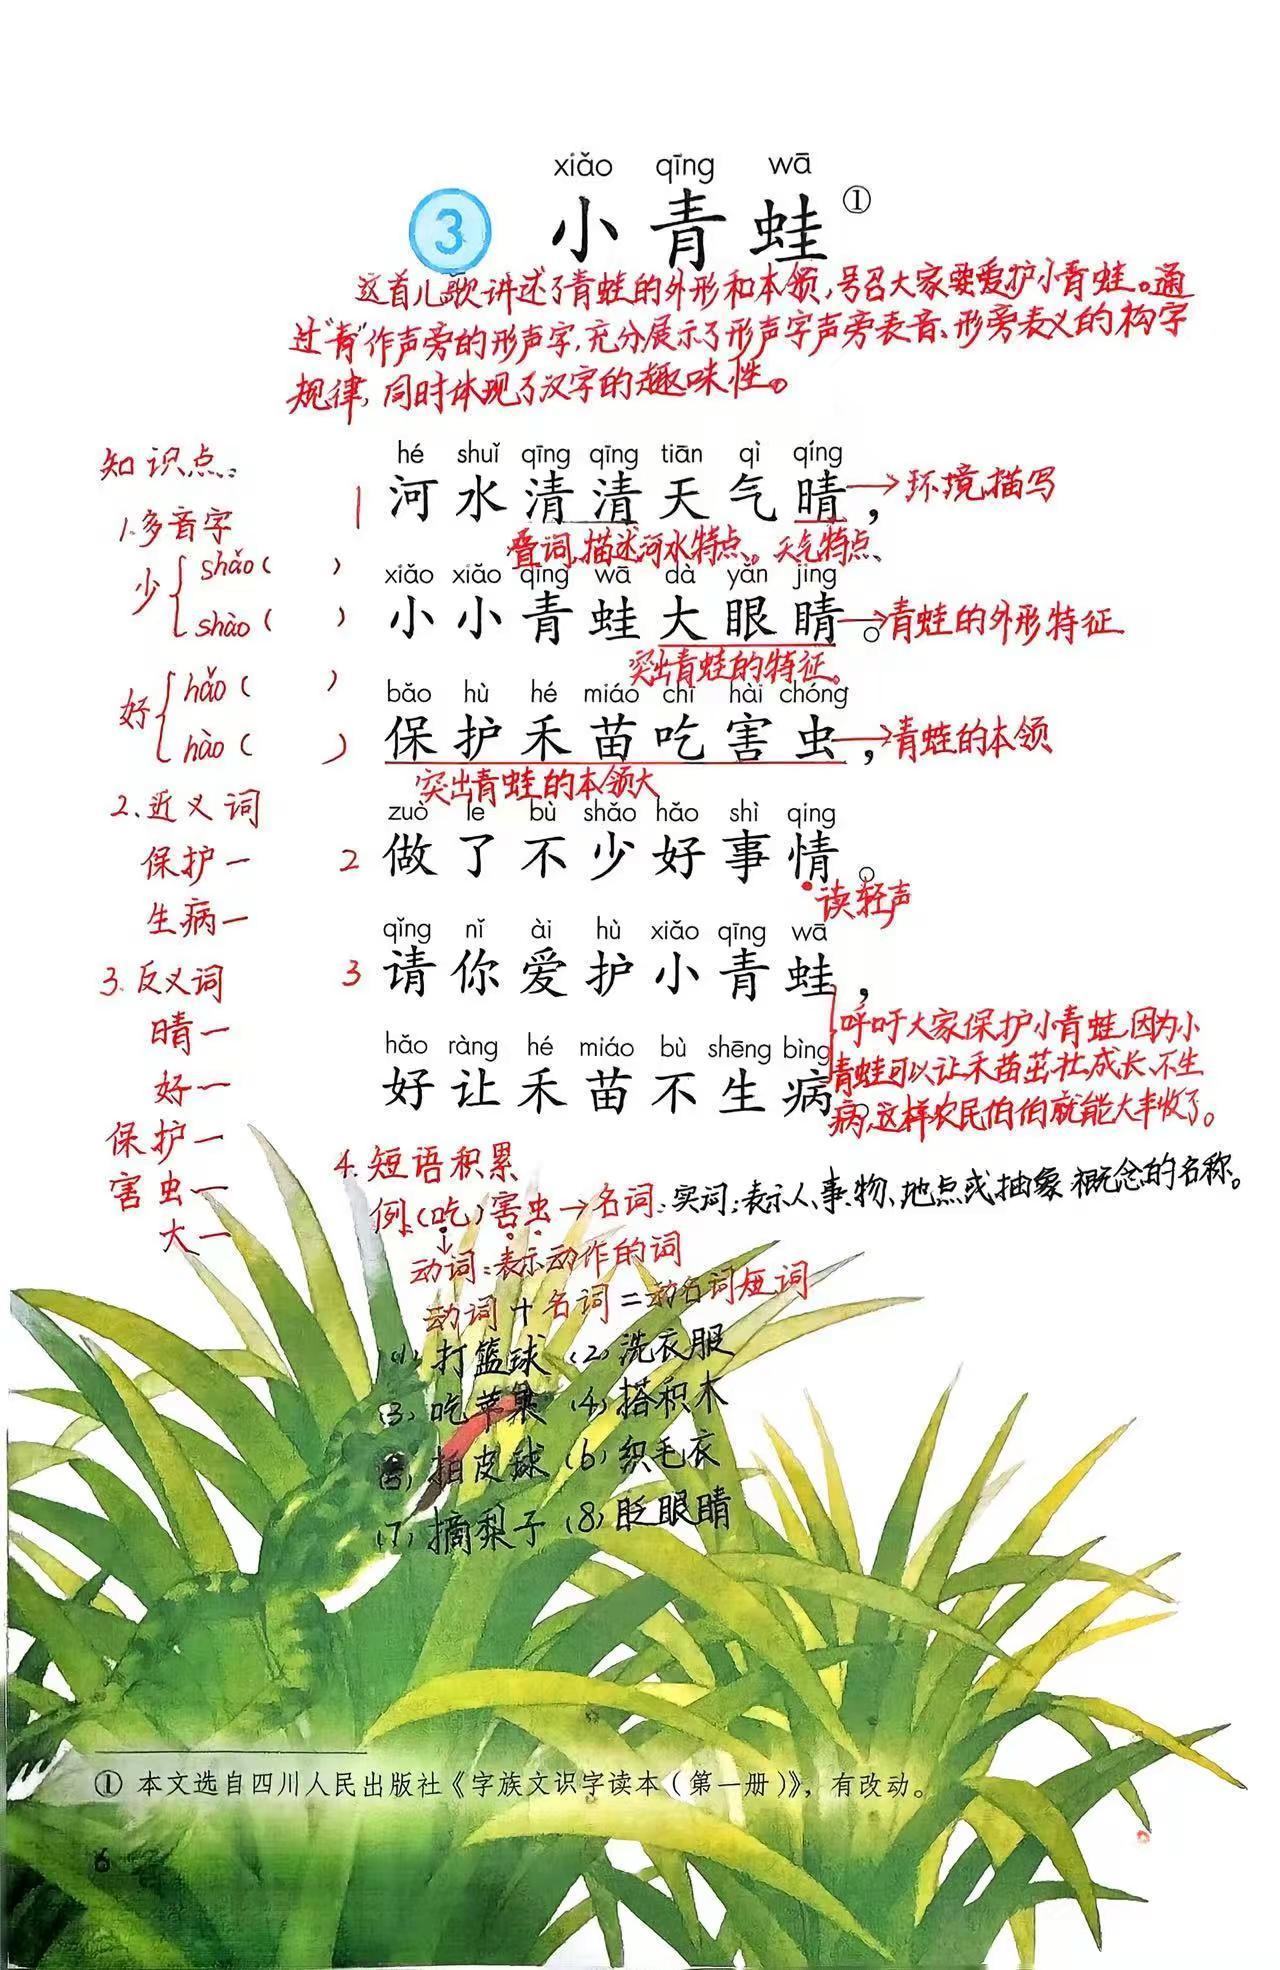 xiǎo qīng wā
3 小青蛙①
这首儿歌讲述了青蛙的外形和本领,号召大家要爱护小青蛙。通
过“青”作声旁的形声字,充分展示了形声字声旁表音、形旁表义的构字
规律,同时体现了汉字的趣味性。
知识点:
1.多音字
少 shǎo( )
shào( )
好 hǎo( )
hào( )
2、近义词
保护—
生病—
3、反义词
晴—
好—
保护—
害虫—
大—
hé shuǐ qīng qīng tiān qì qíng
1 河水清清天气晴,→环境描写
叠词,描述河水特点。天气特点、
xiǎo xiǎo qīng wā dà yǎn jing
小小青蛙大眼睛。→青蛙的外形特征
突出青蛙的特征。
bǎo hù hé miáo chī hài chóng
保护禾苗吃害虫,→青蛙的本领
突出青蛙的本领大
zuò le bù shǎo hǎo shì qing
2 做了不少好事情。
读轻声
qǐng nǐ ài hù xiǎo qīng wā
3 请你爱护小青蛙,
hǎo ràng hé miáo bù shēng bìng
好让禾苗不生病。
呼吁大家保护小青蛙,因为小
青蛙可以让禾苗茁壮成长、不生
病,这样农民伯伯就能大丰收了。
4.短语积累
例:(吃)害虫→名词:实词;表示人、事、物、地点或抽象概念的名称。
动词:表示动作的词
动词+名词=动名词短词
(1)打篮球 (2)洗衣服
(3)吃苹果 (4)搭积木
(5)拍皮球 (6)织毛衣
(7)摘梨子 (8)眨眼睛
① 本文选自四川人民出版社《字族文识字读本(第一册)》,有改动。
6